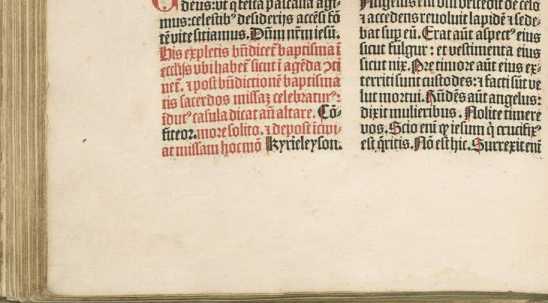 deus: ut q festa paschalia agi-
mus: celestibꝰ desiderijs accēsi fō
tē vite sitiamus. Dn̄m nr̄m iesū.
His expletis bn̄dicet̄ baptisma ī
ecclijs vbi habet̄ sicut ī agēda ꝯti
net̄. ⁊ post bn̄dictionē baptisma
tis sacerdos missaꝫ celebraturꝰ:
īdutꝰ casula dicat an̄ altare. Cō-
fiteor. more solito. ⁊ deposit icipi-
at missam hoc mō Kyrieleyson.
Angelus em̄ dn̄i descēdit de celo
⁊ accedens reuoluit lapidē ⁊ sede-
bat sup eū. Erat aūt aspectꝰ eius
sicut fulgur: et vestimenta eius
sicut nix. Pre timore aūt eius ex-
territi sunt custodes: ⁊ facti sūt ve
lut mortui. Rn̄dēs aūt angelus:
dixit mulieribus. Nolite timere
vos. Scio em̄ ꝙ iesum q̇ crucifixꝰ
est q̄ritis. Nō est hic. Surrexit em̄